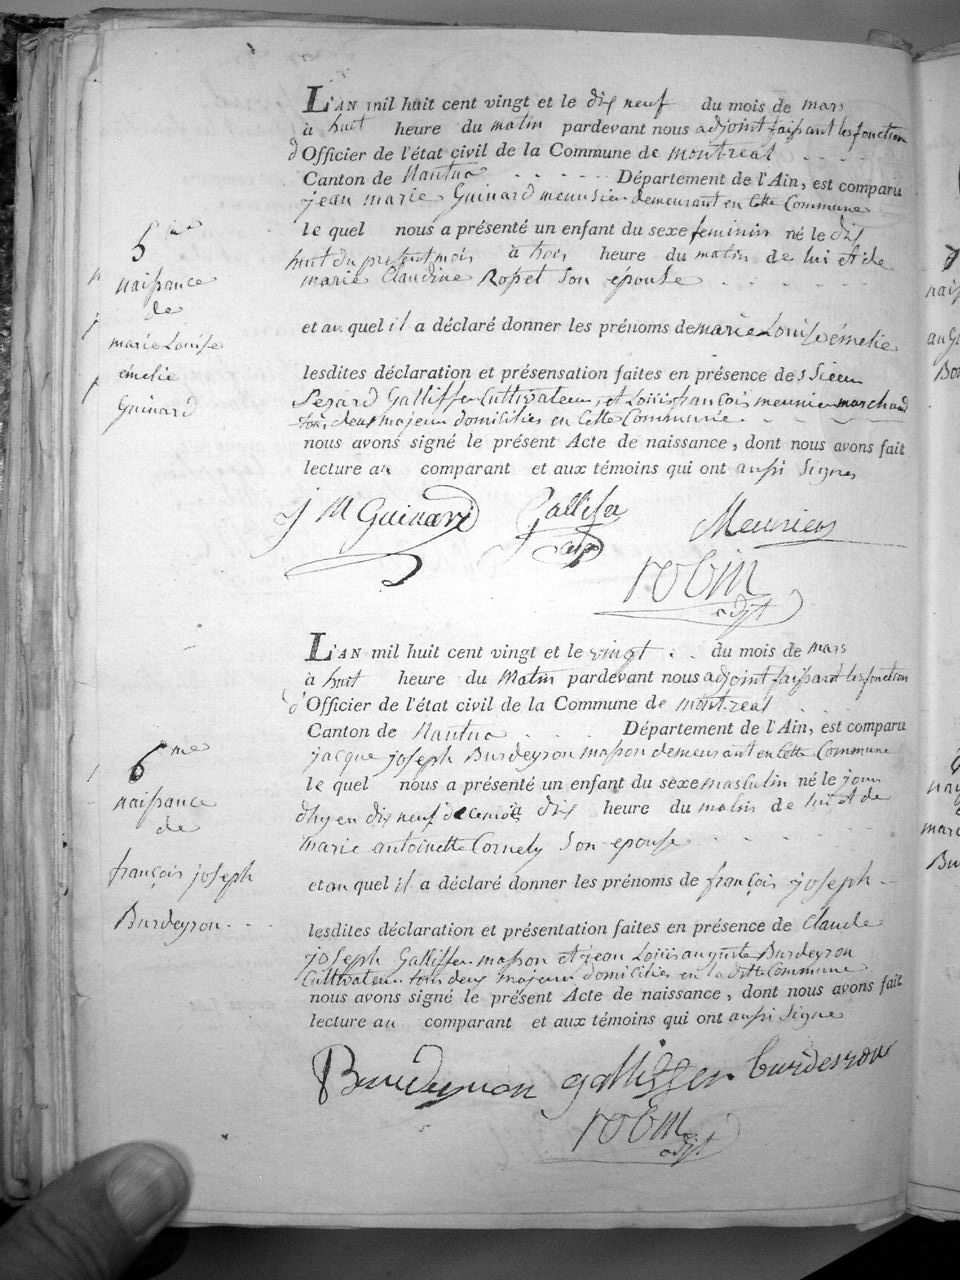 L'AN mil huit cent vingt et le dix neuf du mois de mars
à huit heure du matin pardevant nous adjoint faissant les fonction
d'Officier de l'état civil de la Commune de montreal
Canton de Nantua Département de l'Ain, est comparu
jean marie Guinard meunsier demeurant en Cette Commune
le quel nous a présenté un enfant du sexe feminin né le dix
huit du présent mois à trois heure du matin de lui et de
marie Claudine Rosset son épouse
et au quel il a déclaré donner les prénoms de marie Louise émelie
lesdites déclaration et présensation faites en présence de
Gallisser Cultivateur, et Louis françois meunier marchand
tous deux majeur domicilies en Cette Commune
nous avons signé le présent Acte de naissance, dont nous avons fait
lecture au comparant et aux témoins qui ont aussi signes
5me
naissance
de
marie Louise
émelie
Guinard
J M Guinard Meunier
robin
adjt
L'AN mil huit cent vingt et le vingt du mois de mars
à huit heure du Matin pardevant nous adjoint faissant les fonction
d'Officier de l'état civil de la Commune de montreal
Canton de Nantua Département de l'Ain, est comparu
jacque joseph Burdeyron masson demeurant en Cette Commune
le quel nous a présenté un enfant du sexe masculin né le jour
dhyer dix neuf de ce mois à dix heure du matin de lui et de
marie antoinette Cornely son epouse
et au quel il a déclaré donner les prénoms de françois joseph
lesdites déclaration et présentation faites en présence de Claude
joseph Galliffer masson et jean Louis auguste Burdeyron
Cultivateur tous deux majeur domicilies en la ditte Commune
nous avons signé le présent Acte de naissance, dont nous avons fait
lecture au comparant et aux témoins qui ont aussi signe
6me
naissance
de
françois joseph
Burdeyron
Burdeyron galliffer burdeyron
robin
adjt